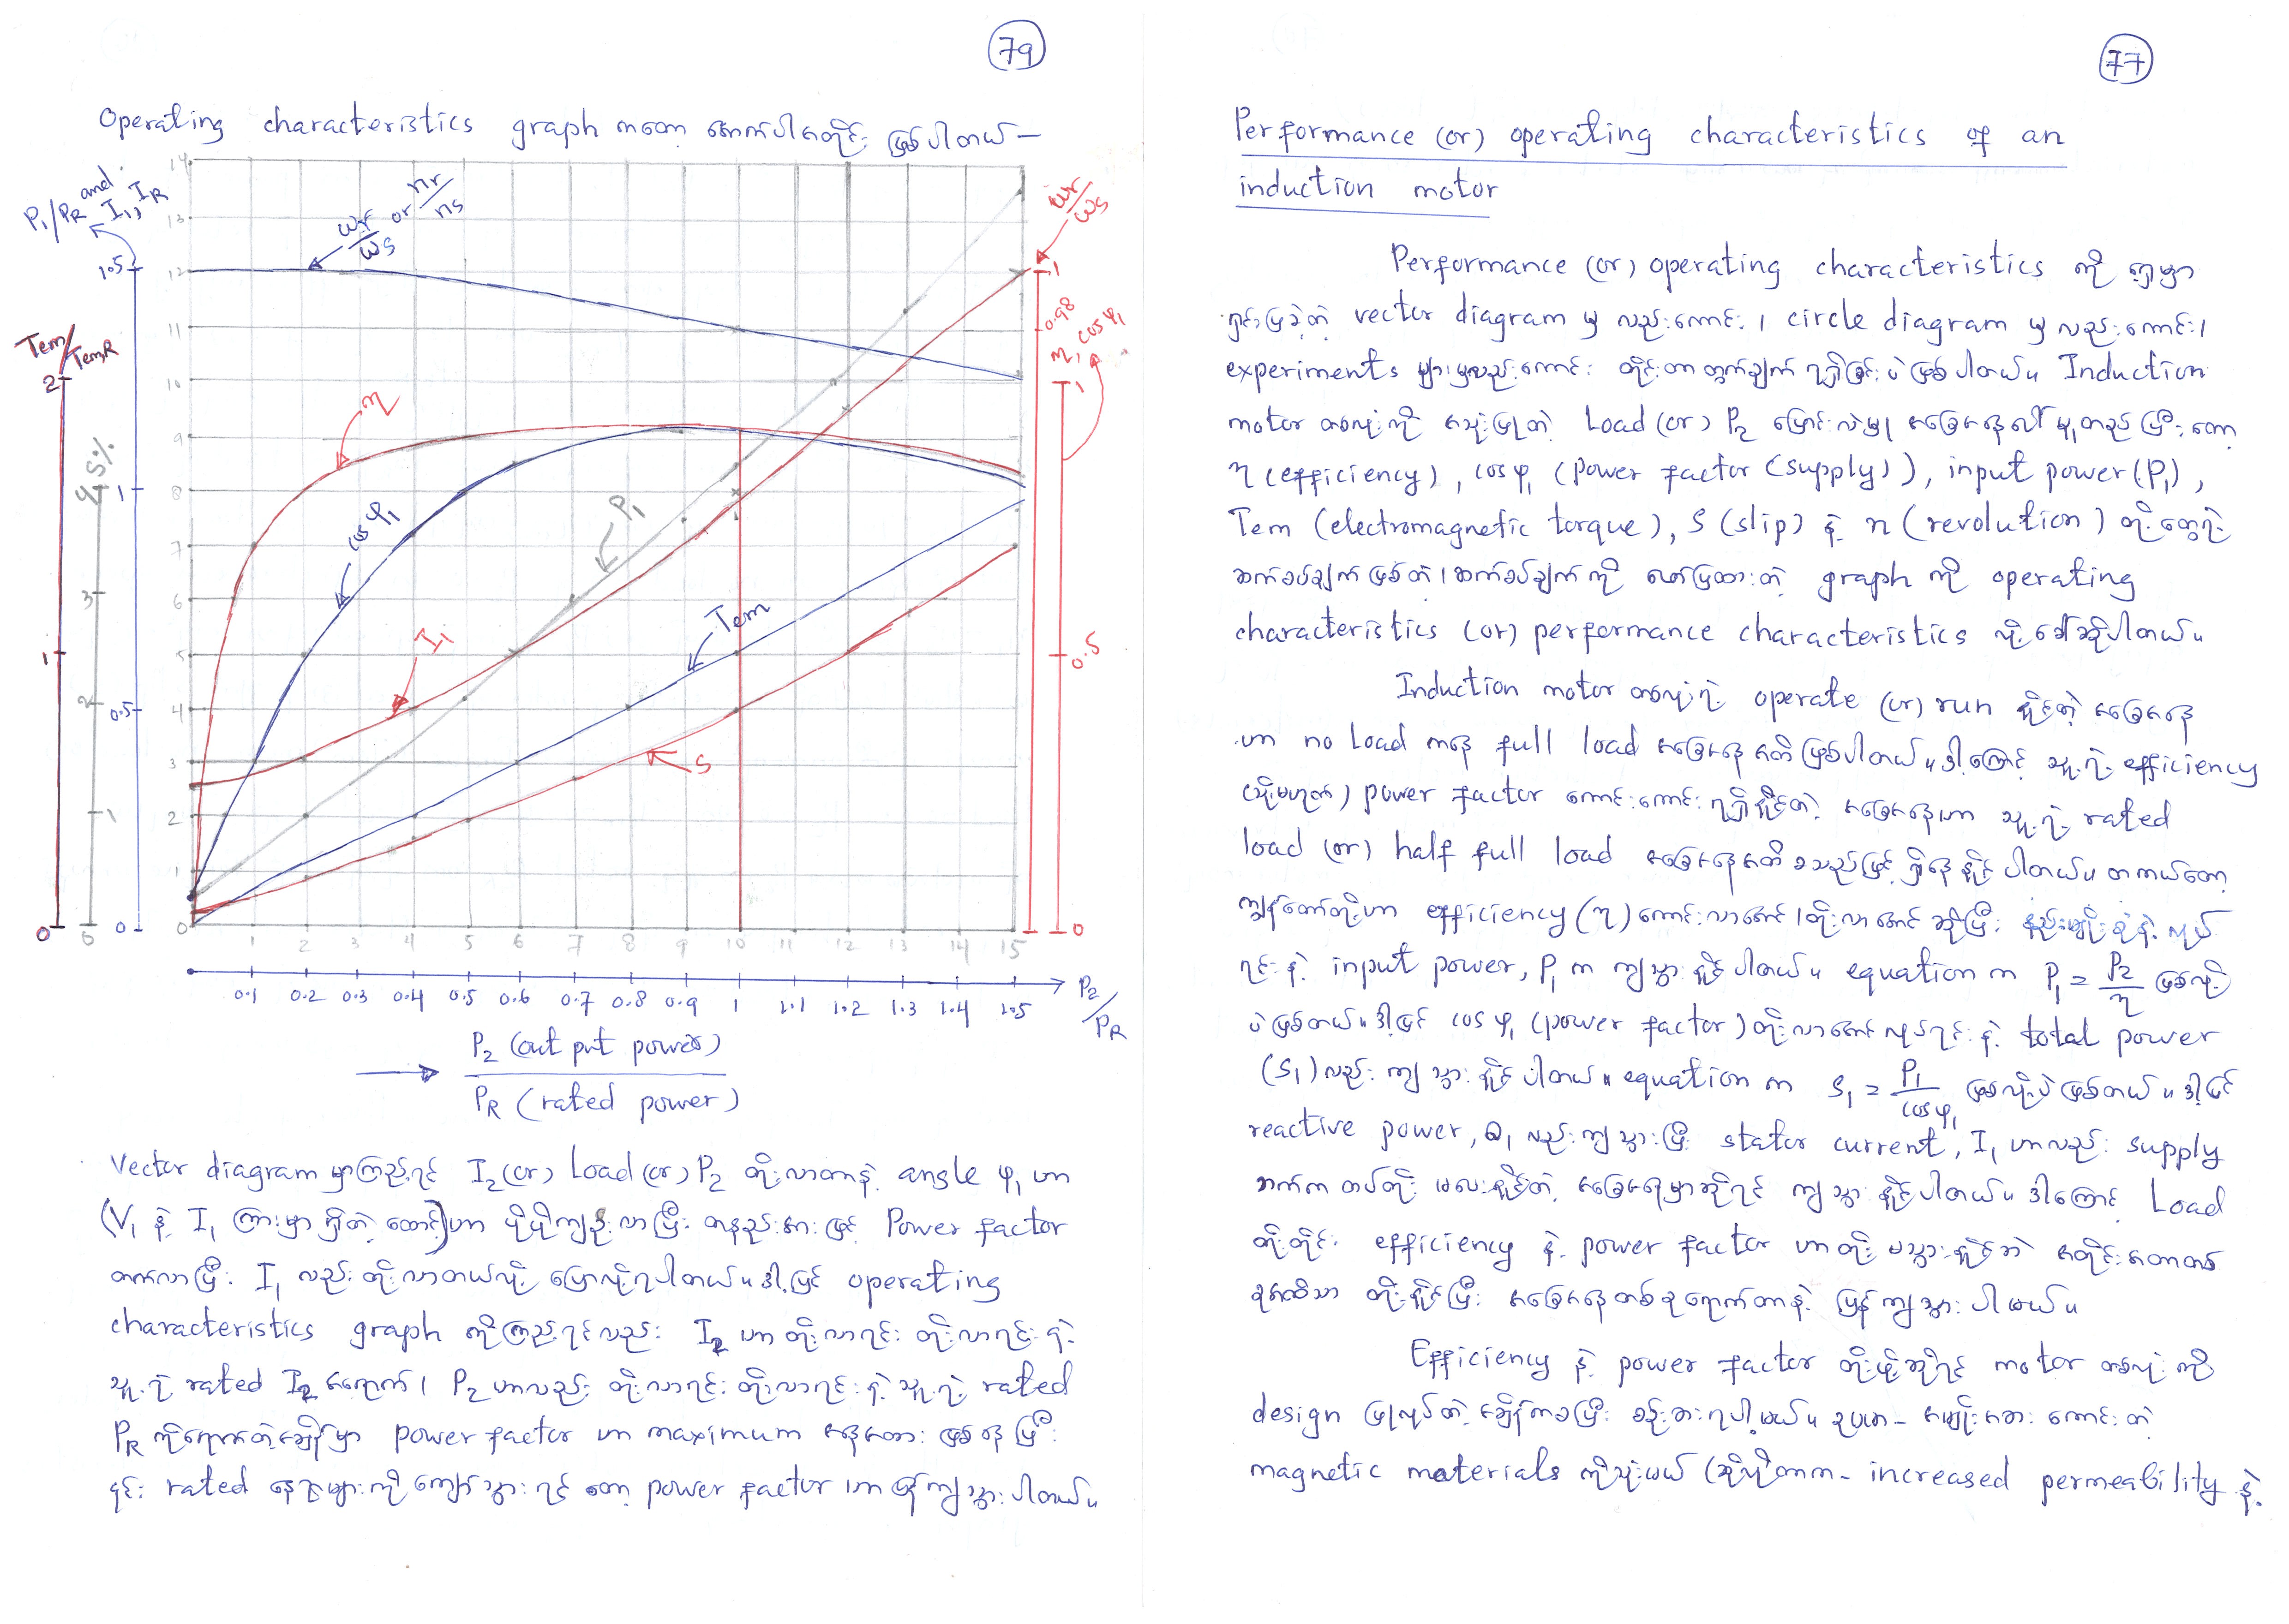 79
Operating characteristics graph ကတော့ အောက်ပါအတိုင်း ဖြစ်ပါတယ် –
P₁/P_R and I₁, I_R
ωr/ωs or nr/ns
ωr/ωs
Tem/Tem,R
S%
η, cos φ₁
η
cos φ₁
P₁
I₁
Tem
S
14
13
12
11
10
9
8
7
6
5
4
3
2
1
0
2
1
0
4
3
2
1
0
1.5
1
0.5
0
1
0.98
1
0.5
0
1 2 3 4 5 6 7 8 9 10 11 12 13 14 15
0.1 0.2 0.3 0.4 0.5 0.6 0.7 0.8 0.9 1 1.1 1.2 1.3 1.4 1.5 P₂/P_R
→ P₂ (out put power)
P_R (rated power)
Vector diagram မှာကြည့်ရင် I₂ (or) Load (or) P₂ တိုးလာတာနဲ့ angle φ₁ ဟာ
(V₁ နဲ့ I₁ ကြားမှာ ရှိတဲ့ ထောင့်) ဟာ ပိုပိုကျဉ်းလာပြီး တနည်းအားဖြင့် Power factor
တက်လာပြီး I₁ လည်း တိုးလာတယ်လို့ ပြောလို့ရပါတယ်။ ဒါ့ပြင် operating
characteristics graph ကိုကြည့်ရင်လည်း I₂ ဟာ တိုးလာရင်း တိုးလာရင်းနဲ့
သူ့ရဲ့ rated I₂ ရောက်၊ P₂ ဟာလည်း တိုးလာရင်း တိုးလာရင်းနဲ့ သူ့ရဲ့ rated
P_R ကိုရောက်တဲ့အချိန်မှာ power factor ဟာ maximum အနေအထား ဖြစ်နေပြီး
၎င်း rated နေရာများကို ကျော်သွားရင်တော့ power factor ဟာ ပြန်ကျသွားပါတယ်။
77
Performance (or) operating characteristics of an
induction motor
Performance (or) operating characteristics ကို ရှေ့မှာ
ရှင်းပြခဲ့တဲ့ vector diagram မှ လည်းကောင်း၊ circle diagram မှ လည်းကောင်း၊
experiments များမှလည်းကောင်း တိုင်းတာတွက်ချက် ရရှိခြင်းပဲ ဖြစ်ပါတယ်။ Induction
motor တစ်လုံးကို အသုံးပြုတဲ့ Load (or) P₂ ပြောင်းလဲမှု အခြေအနေပေါ် မူတည်ပြီးတော့
η (efficiency), cos φ₁ (power factor (supply)), input power (P₁),
Tem (electromagnetic torque), S (slip) နဲ့ n (revolution) တို့တွေရဲ့
ဆက်စပ်ချက်ဖြစ်တဲ့၊ ဆက်စပ်ချက်ကို ဖော်ပြထားတဲ့ graph ကို operating
characteristics (or) performance characteristics လို့ ခေါ်ဆိုပါတယ်။
Induction motor တစ်လုံးရဲ့ operate (or) run နိုင်တဲ့ အခြေအနေ
ဟာ no load ကနေ full load အခြေအနေအထိ ဖြစ်ပါတယ်။ ဒါ့ကြောင့် သူ့ရဲ့ efficiency
(သို့မဟုတ်) power factor ကောင်းကောင်း ရရှိနိုင်တဲ့ အခြေအနေဟာ သူ့ရဲ့ rated
load (or) half full load အခြေအနေအထိ စသည်ဖြင့် ရှိနေနိုင်ပါတယ်။ တကယ်တော့
ကျွန်တော်တို့ဟာ efficiency (η) ကောင်းလာအောင်၊ တိုးလာအောင် ဆိုပြီး နည်းမျိုးစုံနဲ့ လုပ်
ရင်းနဲ့ input power, P₁ က ကျသွားနိုင်ပါတယ်။ equation က P₁ = P₂/η ဖြစ်လို့
ပဲ ဖြစ်တယ်။ ဒါ့ပြင် cos φ₁ (power factor) တိုးလာအောင်လုပ်ရင်းနဲ့ total power
(S₁) လည်း ကျသွားနိုင်ပါတယ်။ equation က S₁ = P₁/cos φ₁ ဖြစ်လို့ပဲ ဖြစ်တယ်။ ဒါ့ပြင်
reactive power, Q₁ လည်းကျသွားပြီး stator current, I₁ ဟာလည်း supply
ဘက်က ထပ်တိုး မပေးနိုင်တဲ့ အခြေအနေမှာဆိုရင် ကျသွားနိုင်ပါတယ်။ ဒါကြောင့် Load
တိုးတိုင်း efficiency နဲ့ power factor ဟာတိုး မသွားနိုင်ဘဲ အတိုင်းအတာတစ်
ခုအထိသာ တိုးနိုင်ပြီး အခြေအနေတစ်ခုရောက်တာနဲ့ ပြန်ကျသွားပါမယ်။
Efficiency နဲ့ power factor တိုးဖို့ဆိုရင် motor တစ်လုံးကို
design ပြုလုပ်တဲ့ အချိန်ကစပြီး စဉ်းစားရပါ့မယ်။ ဥပမာ – အမျိုးအစားကောင်းတဲ့
magnetic materials ကိုသုံးမယ် (ဆိုလိုတာက – increased permeability နဲ့